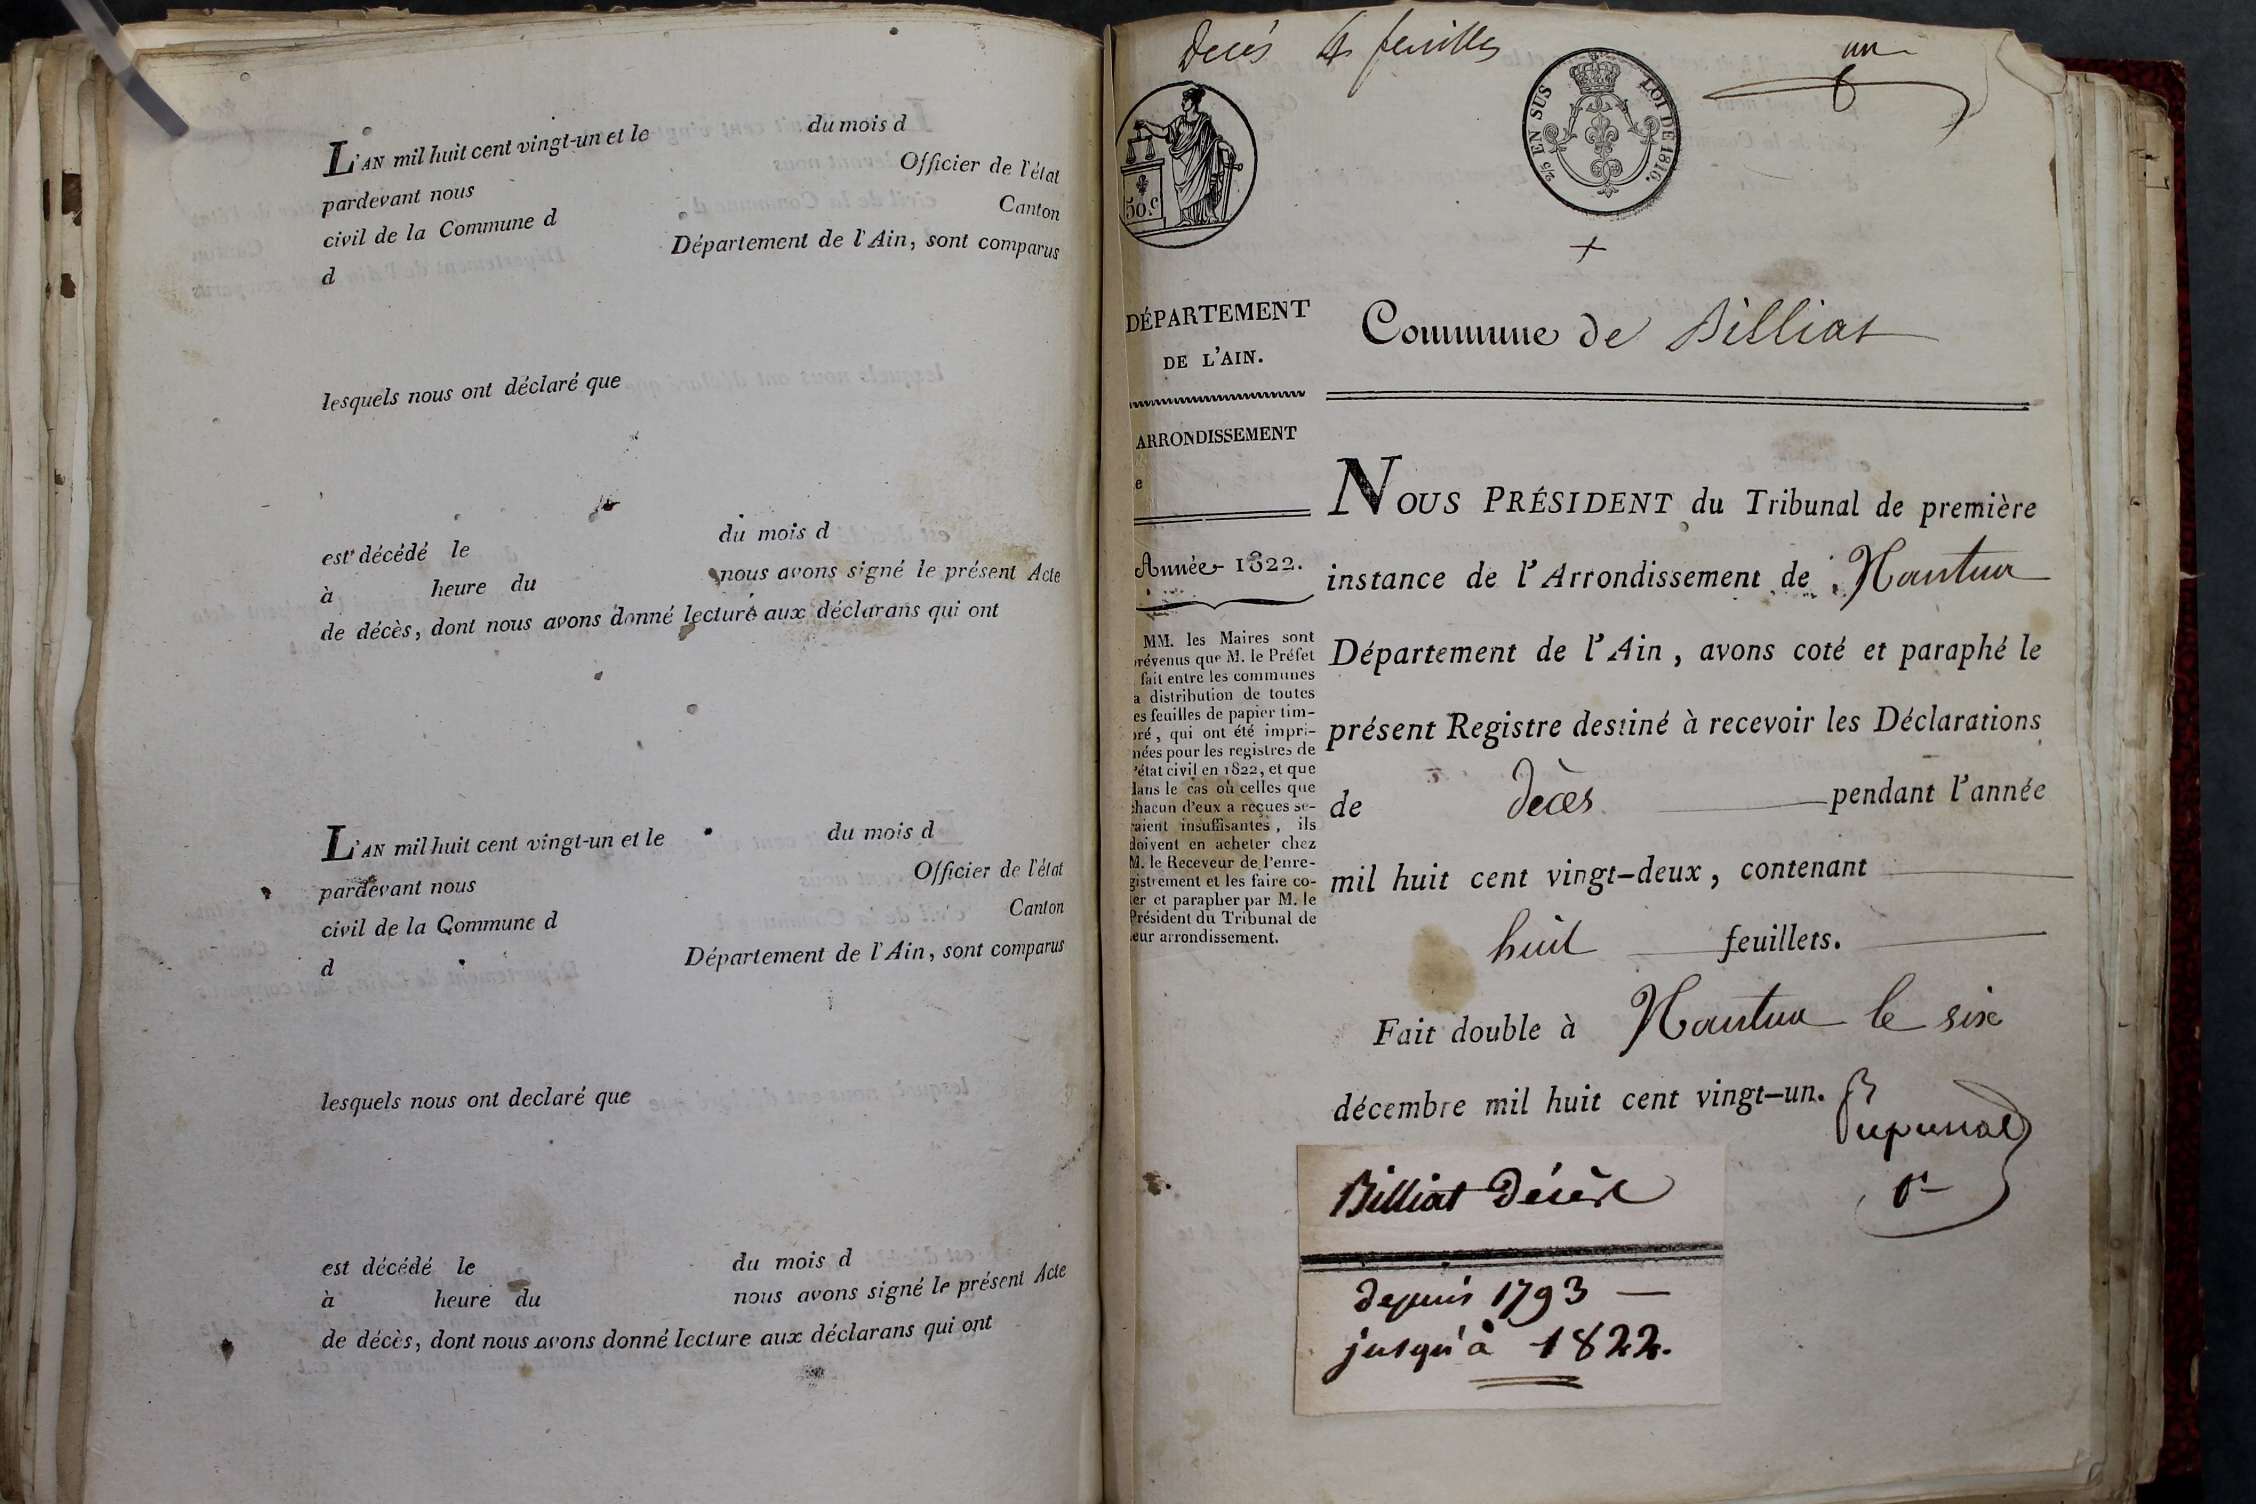 L'AN mil huit cent vingt-un et le du mois d
pardevant nous Officier de l'état
civil de la Commune d Canton
d Département de l'Ain, sont comparus
lesquels nous ont déclaré que
est décédé le du mois d
à heure du nous avons signé le présent Acte
de décès, dont nous avons donné lecture aux déclarans qui ont
L'AN mil huit cent vingt-un et le du mois d
pardevant nous Officier de l'état
civil de la Commune d Canton
d Département de l'Ain, sont comparus
lesquels nous ont declaré que
est décédé le du mois d
à heure du nous avons signé le présent Acte
de décès, dont nous avons donné lecture aux déclarans qui ont
Décès 4 feuilles
un
50.c
2/5 EN SUS LOI DE 1816.
DÉPARTEMENT
DE L'AIN.
ARRONDISSEMENT
e
Année 1822.
MM. les Maires sont
révenus que M. le Préfet
fait entre les communes
a distribution de toutes
es feuilles de papier tim-
ré, qui ont été impri-
mées pour les registres de
'état civil en 1822, et que
dans le cas où celles que
chacun d'eux a reçues se-
raient insuffisantes, ils
doivent en acheter chez
M. le Receveur de l'enre-
gistrement et les faire co-
er et parapher par M. le
Président du Tribunal de
eur arrondissement.
Commune de Billiat
NOUS PRÉSIDENT du Tribunal de première
instance de l'Arrondissement de Nantua
Département de l'Ain, avons coté et paraphé le
présent Registre destiné à recevoir les Déclarations
de décès pendant l'année
mil huit cent vingt-deux, contenant
huit feuillets.
Fait double à Nantua le six
décembre mil huit cent vingt-un.
Billiat Décès
depuis 1793 —
jusqu'à 1822.